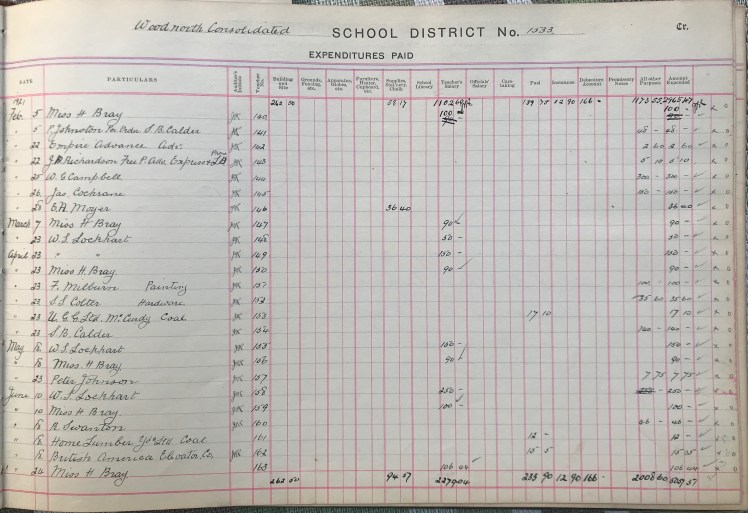 Woodnorth Consolidated SCHOOL DISTRICT No. 1533 Cr.
EXPENDITURES PAID
DATE PARTICULARS Auditor's Initials Voucher No. Building and Site Grounds, Fencing, etc. Apparatus, Globes, etc. Furniture, Heater, Cupboard, etc. Supplies, Stationery Chalk School Library Teacher's Salary Officials' Salary Care-taking Fuel Insurance Debenture Account Promissory Notes All other Purposes Amount Expended
1921 262 50 58 17 139 75 12 90 166 -
Feb. 5 Miss H Bray 140 100 100
" 5 P. Johnston Per Order S.B. Calder 141 48 - 48 -
" 22 Empire Advance Adv. 142 2 60 2 60
" 22 Richardson 143 5 10 5 10
" 25 W.G Campbell 144 300 - 300 -
" 26 Jas. Cochrane 145 150 - 150 -
" 28 Moyer 146 36 40 36 40
March 7 Miss H Bray 147 90 90 -
" 23 W.S. Lockhart 148 50 - 50 -
April 23 " " 149 150 - 150 -
" 23 Miss H Bray 150 90 90 -
" 23 F. Milburn Painting 151 100 - 100 -
" 23 S.S Colter Hardware 152 35 60 35 60
" 23 U.G.G. Ltd. McCurdy Coal 153 17 10 17 10
" 23 S.B. Calder 154 140 - 140 -
May 18 W.S. Lockhart 155 150 - 150 -
" 18 Miss H. Bray 156 90 90 -
" 23 Peter Johnson 157 7 75 7 75
June 10 W.S. Lockhart 158 250 - 250 -
" 10 Miss H Bray 159 100 - 100 -
" 18 Swanton 160 46 -
" 18 Home Lumber Yds Ltd Coal 161 12 - 12 -
" 18 British America Elevator Co, 162 15 5
" 24 Miss H Bray 163 106 44 106 44
262 50 94 57 2279 04 12 90 166 -